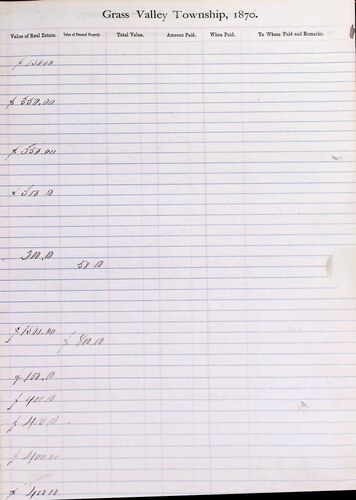 Grass Valley Township, 1870.
Value of Real Estate. Value of Personal Property. Total Value. Amount Paid. When Paid. To Whom Paid and Remarks.
$ 350.00
$ 350.00
300.0
200.0
50.0
$ 1500.00
$ 800.0
$ 150.0
$ 400.0
$ 400.0
$ 400.00
$ 400.0